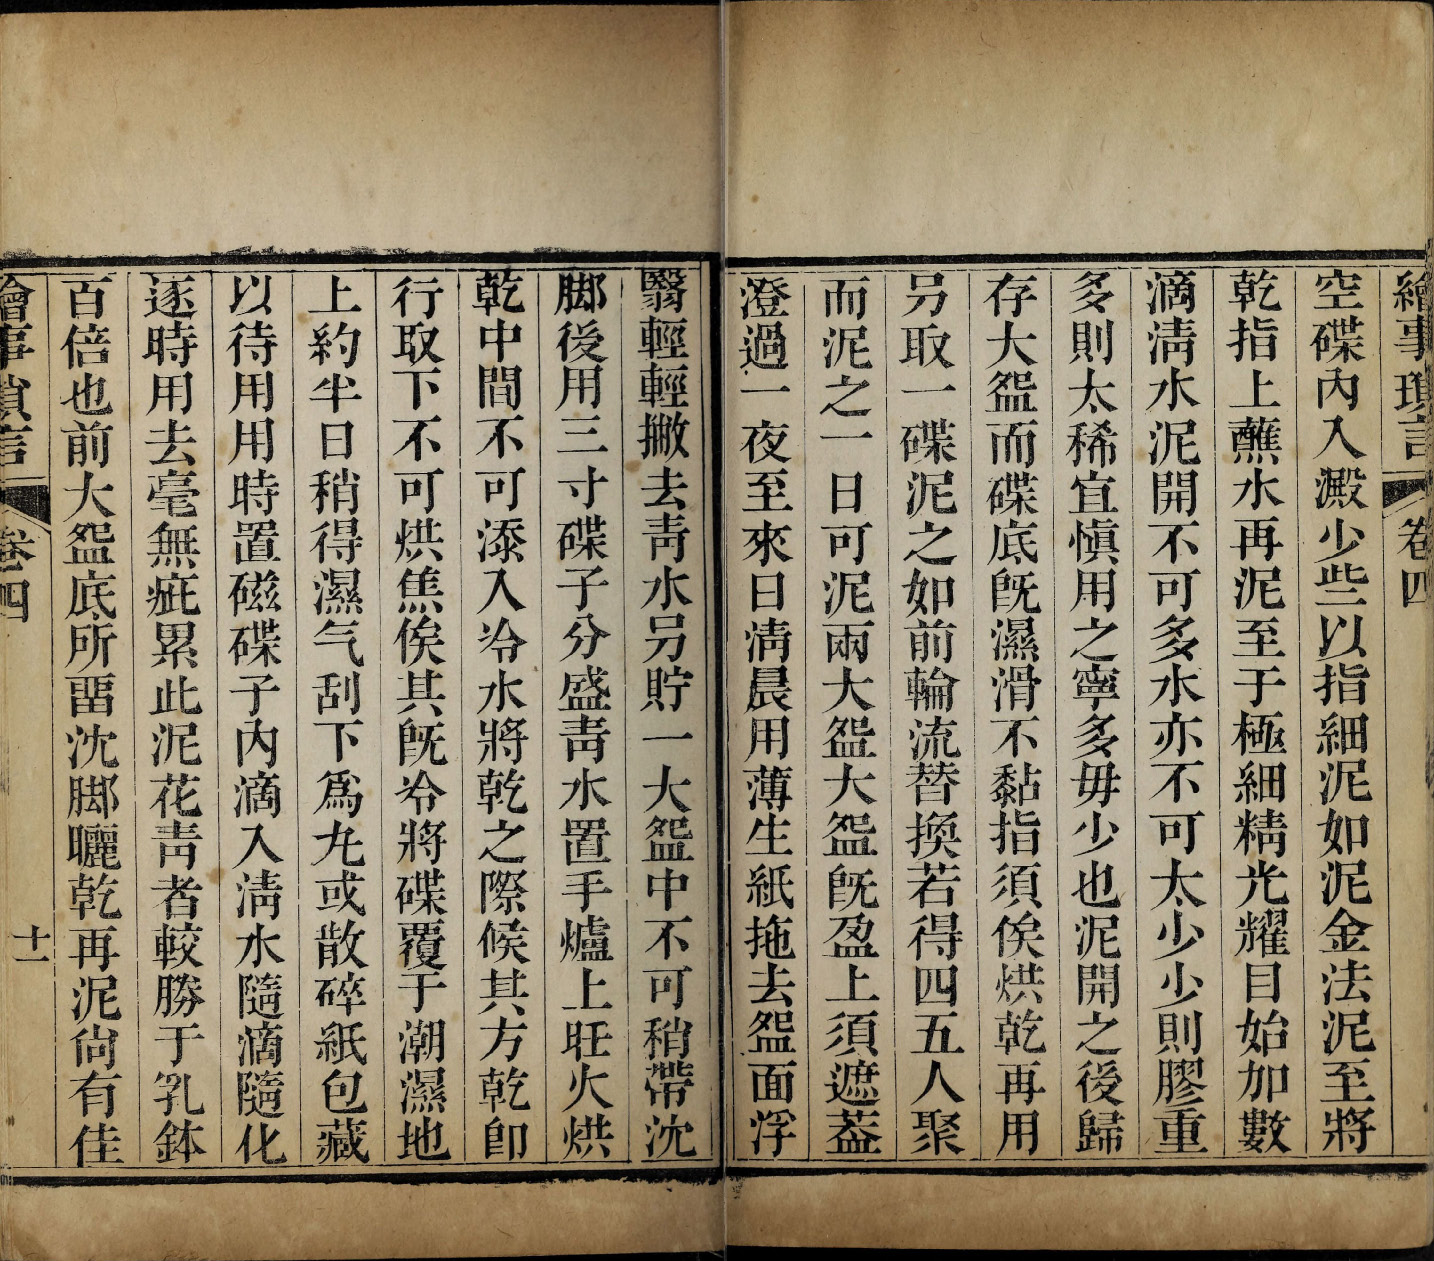 繪事瑣言 卷四
空碟內入澱少些以指細泥如泥金法泥至將
乾指上蘸水再泥至于極細精光耀目始加數
滴淸水泥開不可多水亦不可太少少則膠重
多則太稀宜愼用之寧多毋少也泥開之後歸
存大盌而碟底旣濕滑不黏指須俟烘乾再用
另取一碟泥之如前輪流替換若得四五人聚
而泥之一日可泥兩大盌大盌旣盈上須遮葢
澄過一夜至來日淸晨用薄生紙拖去盌面浮
翳輕輕撇去靑水另貯一大盌中不可稍帶沈
脚後用三寸碟子分盛靑水置手爐上旺火烘
乾中間不可添入冷水將乾之際候其方乾卽
行取下不可烘焦俟其旣冷將碟覆于潮濕地
上約半日稍得濕气刮下爲丸或散碎紙包藏
以待用用時置磁碟子內滴入淸水隨滴隨化
逐時用去毫無疵累此泥花靑者較勝于乳鉢
百倍也前大盌底所畱沈脚曬乾再泥尙有佳
繪事瑣言 卷四 十一